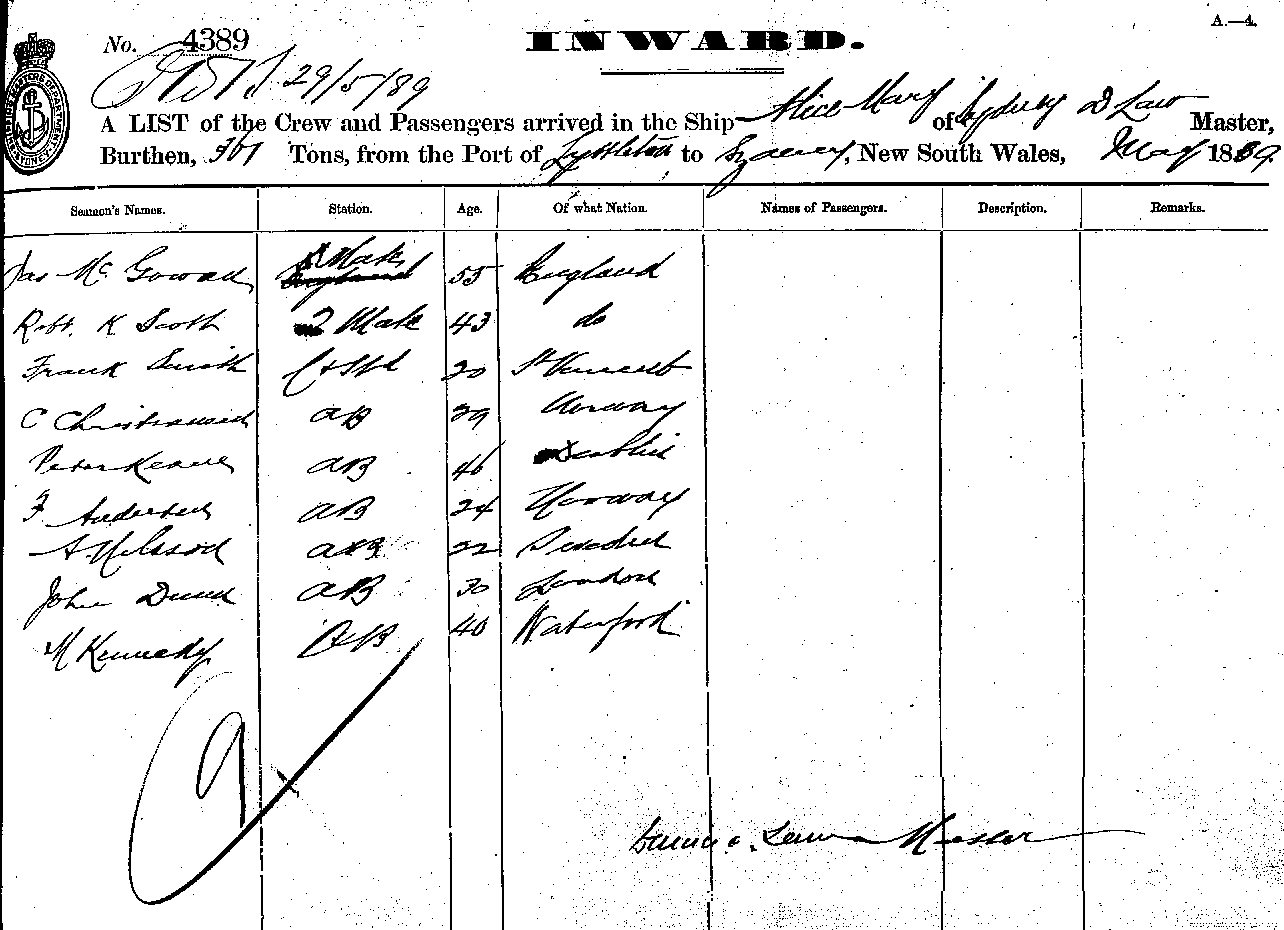 A.—4.
No. 4389
INWARD.
29/5/89
A LIST of the Crew and Passengers arrived in the Ship Alice Mary of Sydney D Law Master,
Burthen, 361 Tons, from the Port of Lyttleton to Sydney, New South Wales, May 1889
Seamen's Names. Station. Age. Of what Nation. Names of Passengers. Description. Remarks.
Jas Mc Gowan Mate 55 England
Robt. K Scott 2 Mate 43 do
Frank Smith C & Std 20 St Vincent
C Christiansen AB 29 Norway
Peter Keane AB 46 Dublin
F Andersen AB 24 Norway
A. Nilsson AB 22 Sweden
John Dunn AB 30 London
M Kennedy AB 40 Waterford
9
Master